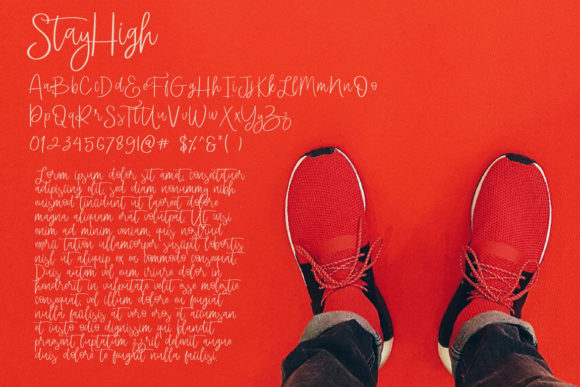 StayHigh
AaBbCcDdEeFfGgHhIiJjKkLlMmNnOo
PpQqRrSsTtUuVvWwXxYyZz
0123456789!@# $%^&*( )
Lorem ipsum dolor sit amet, consectetuer
adipiscing elit, sed diam nonummy nibh
euismod tincidunt ut laoreet dolore
magna aliquam erat volutpat. Ut wisi
enim ad minim veniam, quis nostrud
exerci tation ullamcorper suscipit lobortis
nisl ut aliquip ex ea commodo consequat.
Duis autem vel eum iriure dolor in
hendrerit in vulputate velit esse molestie
consequat, vel illum dolore eu feugiat
nulla facilisis at vero eros et accumsan
et iusto odio dignissim qui blandit
praesent luptatum zzril delenit augue
duis dolore te feugait nulla facilisi.